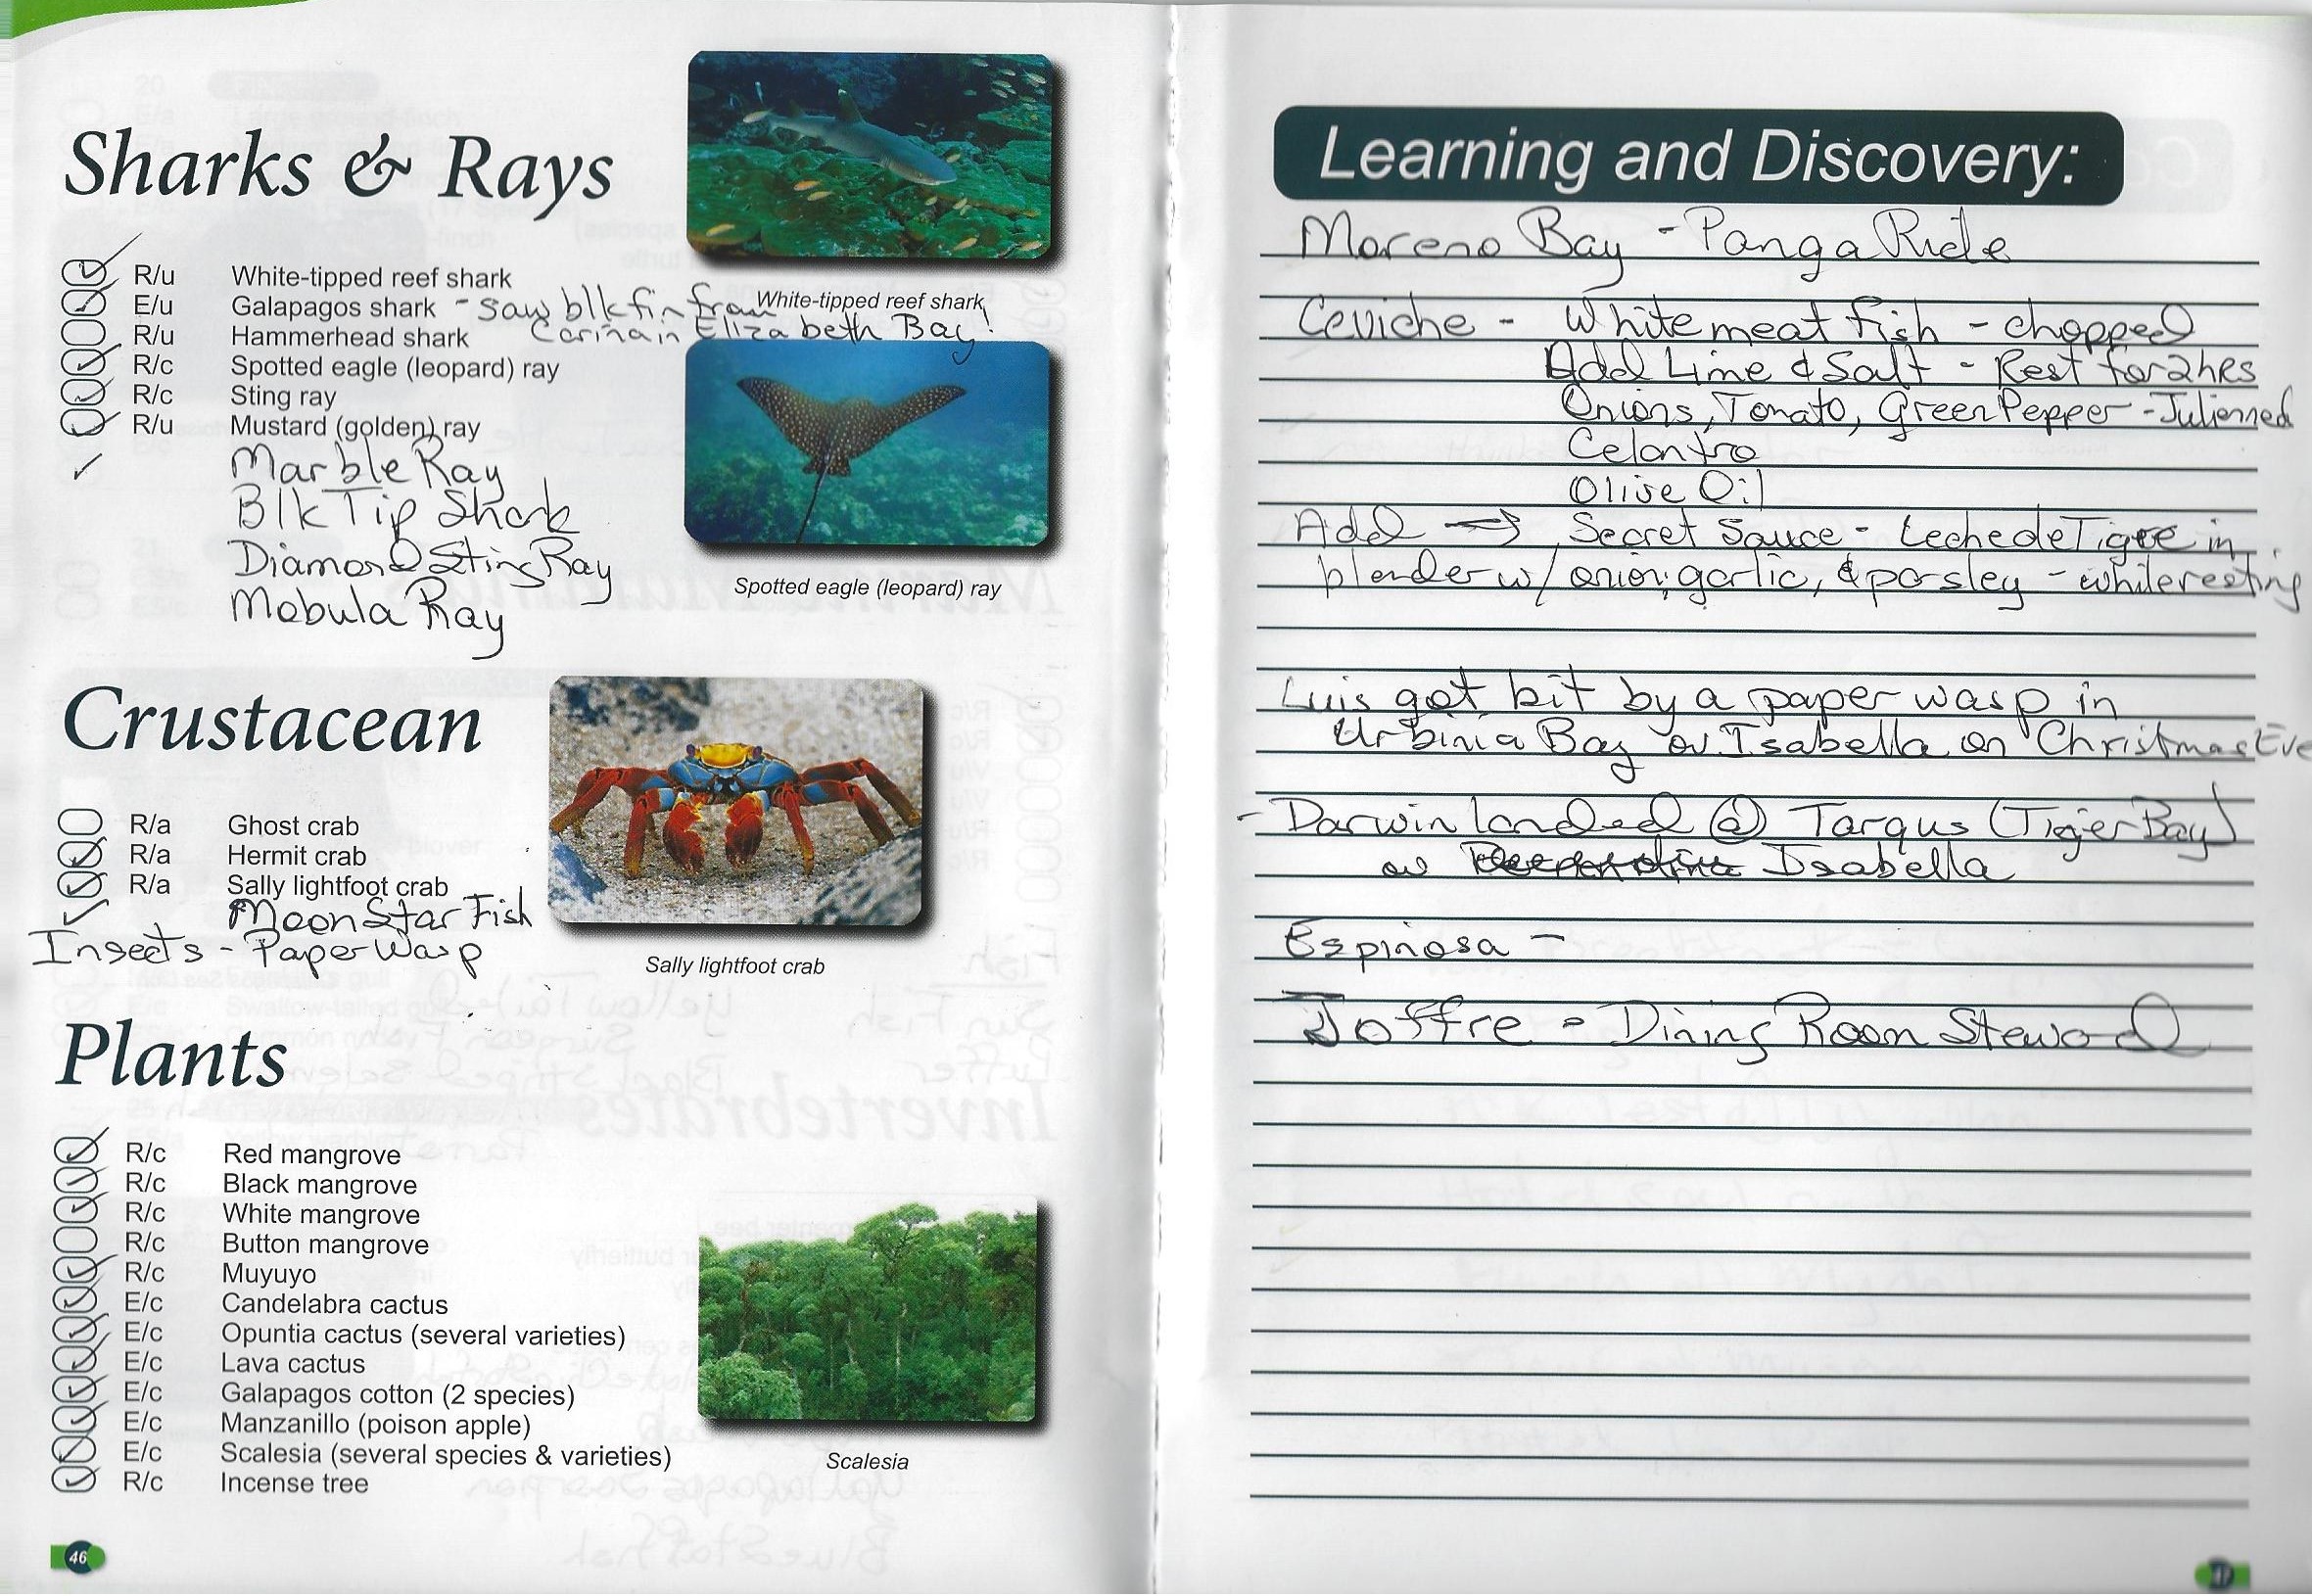 Sharks & Rays
R/u White-tipped reef shark
E/u Galapagos shark - saw blk fin from
R/u Hammerhead shark Carina in Elizabeth Bay!
R/c Spotted eagle (leopard) ray
R/c Sting ray
R/u Mustard (golden) ray
Marble Ray
Blk Tip Shark
Diamond Sting Ray
Mobula Ray
White-tipped reef shark
Spotted eagle (leopard) ray
Crustacean
R/a Ghost crab
R/a Hermit crab
R/a Sally lightfoot crab
Moon Star Fish
Insects - Paper Wasp
Sally lightfoot crab
Plants
R/c Red mangrove
R/c Black mangrove
R/c White mangrove
R/c Button mangrove
R/c Muyuyo
E/c Candelabra cactus
E/c Opuntia cactus (several varieties)
E/c Lava cactus
E/c Galapagos cotton (2 species)
E/c Manzanillo (poison apple)
E/c Scalesia (several species & varieties)
R/c Incense tree
Scalesia
46
Learning and Discovery:
Moreno Bay - Panga Ride
Ceviche - White meat fish - chopped
Add Lime & Salt - Rest for 2 hrs
Onions, Tomato, Green Pepper - Julienned
Celantro
Olive Oil
Add → Secret Sauce - Leche de Tigre in
blender w/ onion, garlic, & parsley - while resting
Luis got bit by a paper wasp in
Urbinia Bay on Isabella on Christmas Eve
- Darwin landed @ Targus (Tiger Bay)
on Isabella
Espinosa -
Joffre - Dining Room Steward